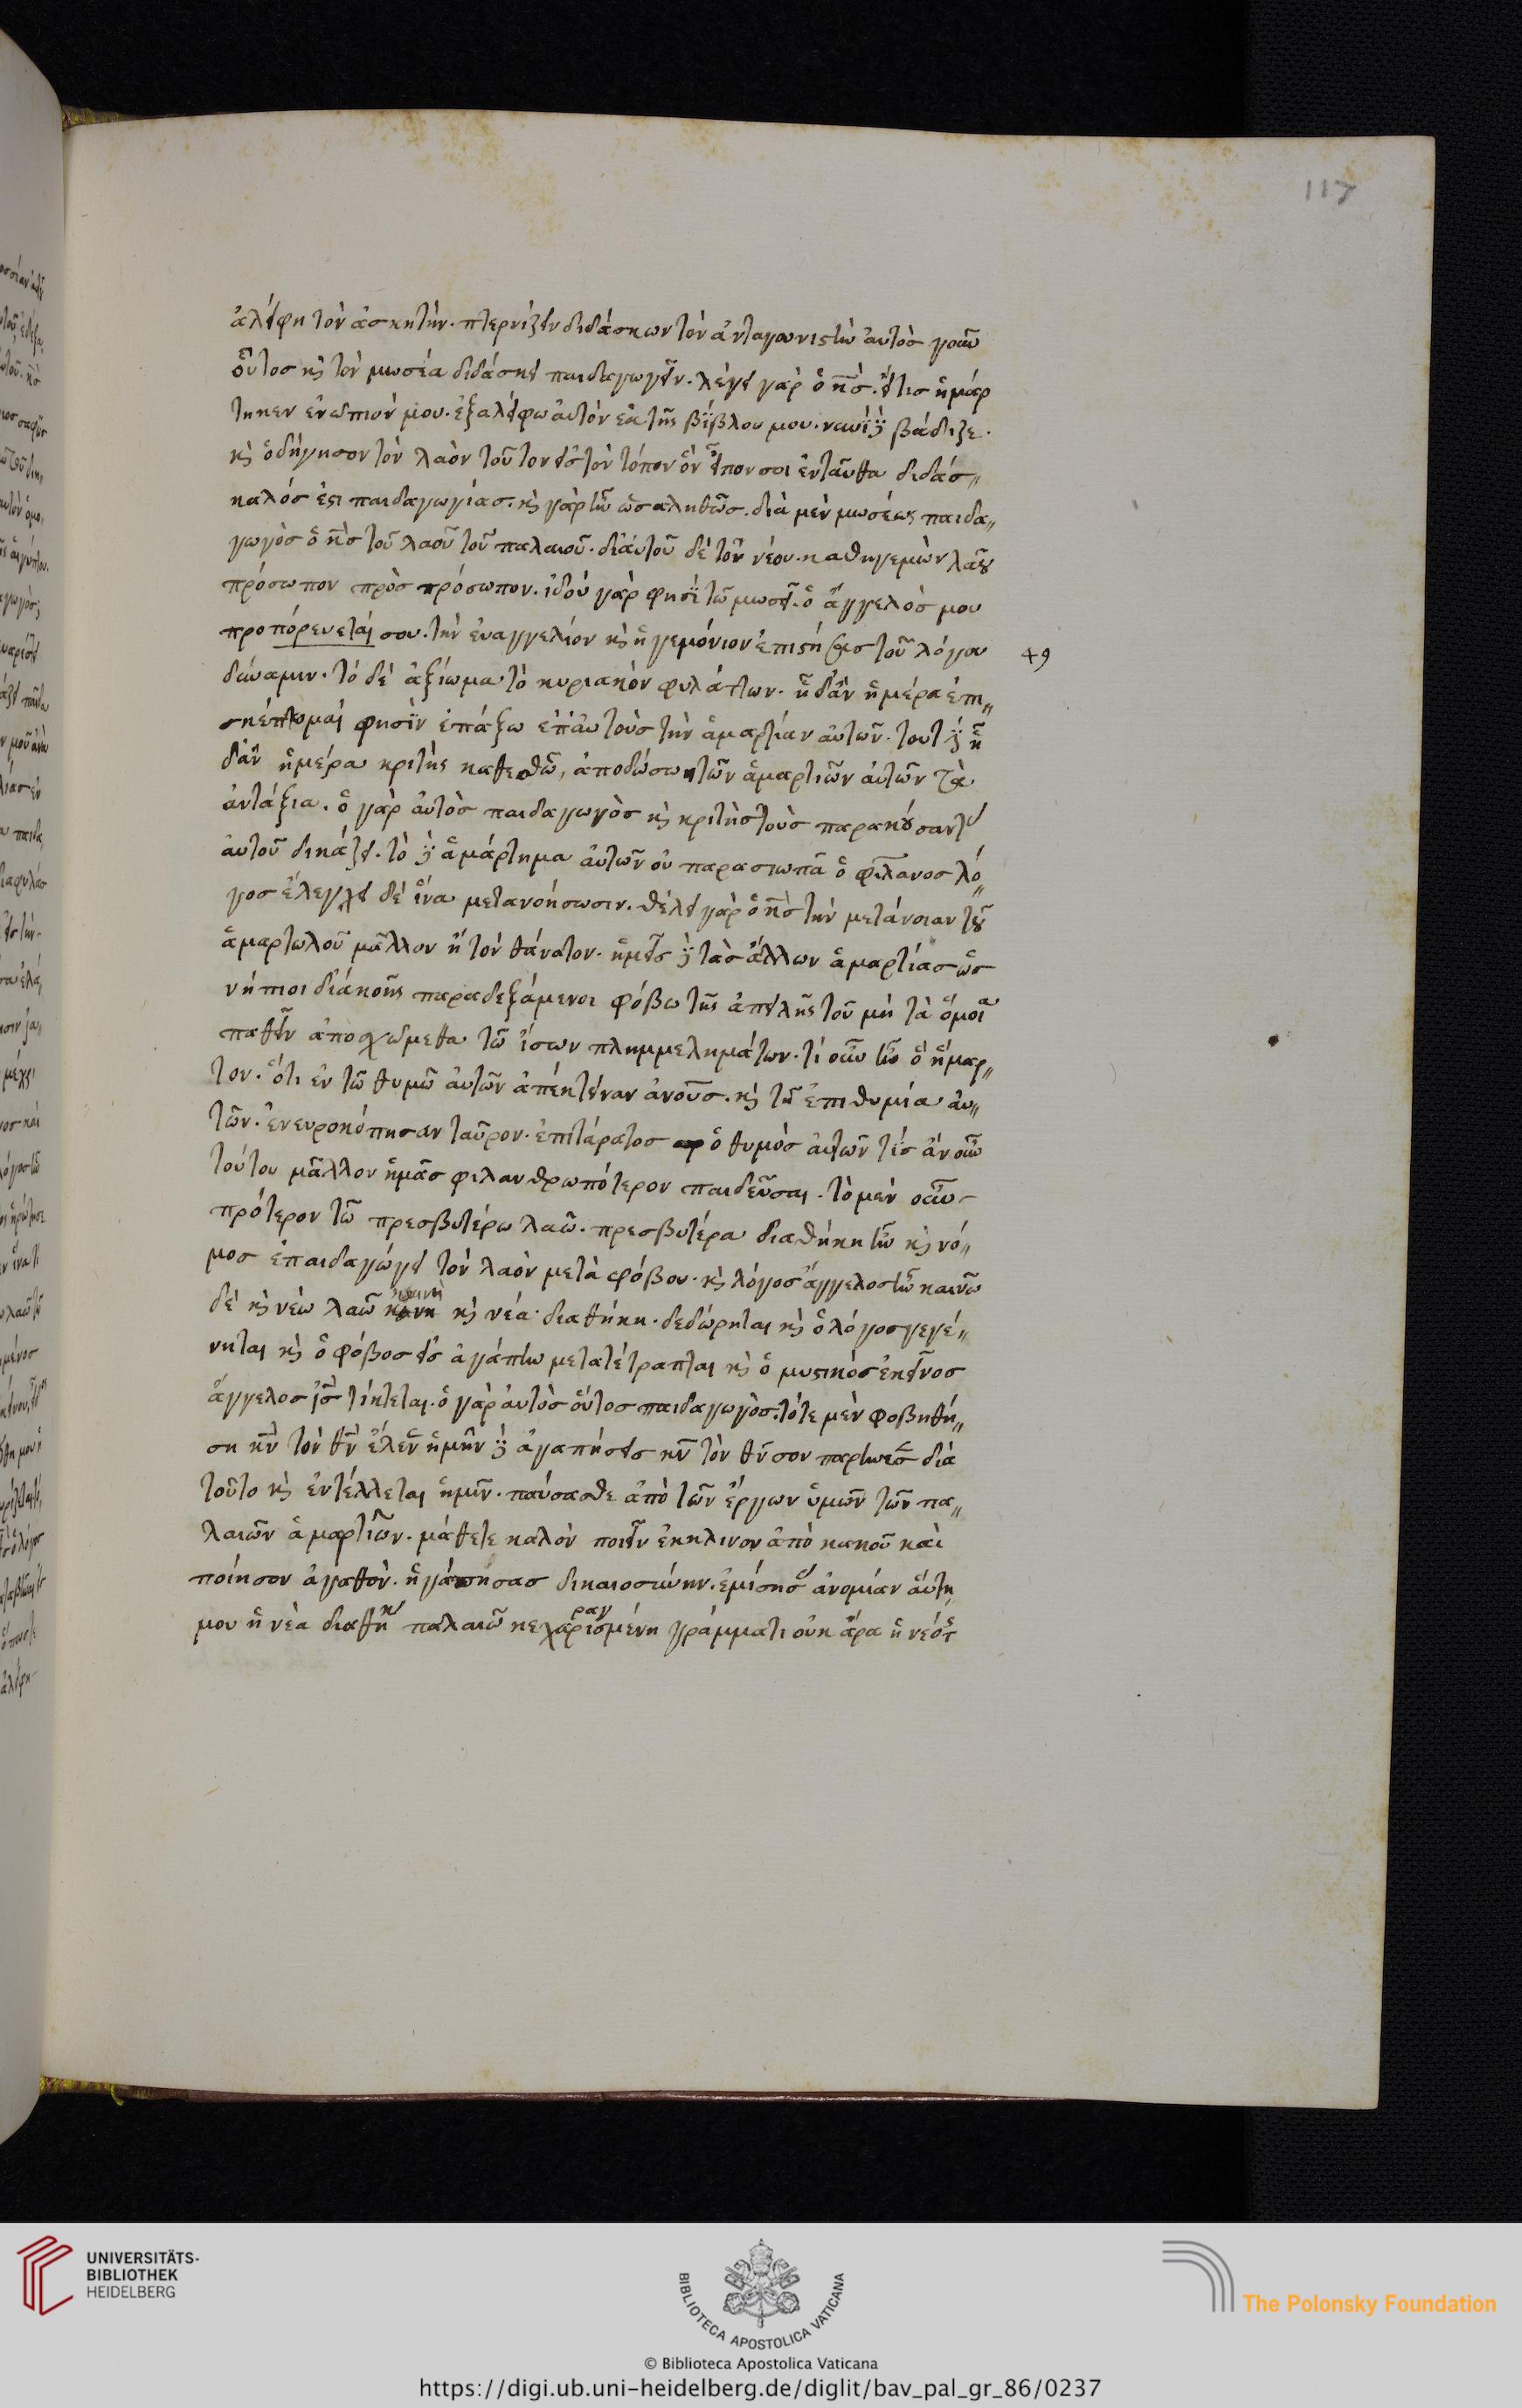 117
ἀλείφη τὸν ἀσκητὴν. πτερνίζειν διδάσκων τὸν ἀνταγωνιστὴν αὐτὸς γοῦν
οὗτος κὶ τὸν μωσέα διδάσκει παιδαγωγεῖν. λέγει γὰρ ὁ κ̅ς̅. εἴτις ἡμάρ
τηκεν ἐνώπιόν μου. ἐξαλείφω αὐτὸν ἐκ τῆς βίβλου μου. νυνὶ δὲ βάδιζε.
κὶ ὁδήγησον τὸν λαὸν τοῦτον εἰς τὸν τόπον ὃν εἶπον σοι ἐνταῦθα διδάσ„
καλός ἐστι παιδαγωγίας. κὶ γὰρ ἦν ὡς ἀληθῶς. διὰ μὲν μωσέως παιδα„
γωγὸς ὁ κ̅ς̅ τοῦ λαοῦ τοῦ παλαιοῦ. δἰαὐτοῦ δὲ τοῦ νέου. καθηγεμὼν λαοῦ
πρόσωπον πρὸς πρόσωπον. ἰδοὺ γὰρ φησὶ τῶ μωσεῖ. ὁ ἄγγελός μου
προπόρευεταί σου. τὴν ἐυαγγελίον κὶ ἡγεμόνιον ἐπιστήσας τοῦ λόγου
49
δύναμιν. τὸ δὲ ἀξίωμα τὸ κυριακὸν φυλάττων. ἧ δἂν ἡμέρα ἐπι„
σκέπτομαί φησὶν ἐπάξω ἐπ'αὐτοὺς τὴν ἁμαρτίαν αὐτῶν. τουτέστι ἧ
δἂν ἡμέρα κριτὴς καθεσθῶ, ἀποδώσω τῶν ἁμαρτιῶν αὐτῶν τὰ
ἀντάξια. ὁ γὰρ αὐτὸς παιδαγωγὸς κὶ κριτὴς τοὺς παρακούσαντ
αὐτοῦ δικάζει. τὸ δὲ ἁμάρτημα αὐτῶν οὐ παρασιωπᾶ ὁ φιλανος λό„
γος ἐλέγχει δὲ ἵνα μετανοήσωσιν. θέλει γὰρ ὁ κ̅ς̅ τὴν μετάνοιαν τοῦ
ἁμαρτωλοῦ μᾶλλον ἢ τὸν θάνατον. ἡμεῖς δὲ τὰς ἄλλων ἁμαρτίας ὡς
νήπιοι δἰἀκοῆς παραδεξάμενοι φόβω τῆς ἀπειλῆς τοῦ μὴ τὰ ὅμοια
παθεῖν ἀποσχώμεθα τῶ ἴσων πλημμελημάτων. τί οὖν ἦν ὃ ἥμαρ„
τον. ὅτι ἐν τῶ θυμῶ αὐτῶν ἀπέκτειναν ἀνοῦς. κὶ τῆ ἐπιθυμία αὐ„
τῶν. ἐνευροκόπησαν ταῦρον. ἐπιτάρατος ὁ θυμὸς αὐτῶν τίς ἂν οὖν
τούτου μᾶλλον ἡμᾶς φιλανθρωπότερον παιδεῦσαι. τὸ μὲν οὖν
πρότερον τῶ πρεσβυτέρω λαῶ. πρεσβυτέρα διαθήκη ἦν κὶ νό„
μος ἐπαιδαγώγει τὸν λαὸν μετὰ φόβου. κὶ λόγος ἄγγελος ἦν καινῶ
δὲ κὶ νέω λαῶ καινὴ κὶ νέα διαθήκη. δεδώρηται κὶ ὁ λόγος γεγέ„
νηται κὶ ὁ φόβος εἰς ἀγάπην μετατέτραπται κὶ ὁ μυστικὸς ἐκεῖνος
ἄγγελος ι̅ς̅ τίκτεται. ὁ γὰρ αὐτὸς οὗτος παιδαγωγὸς. τότε μὲν φοβηθή„
ση κ̅ν̅ τὸν θ̅ν̅ ἔλεγεν ἡμῖν δὲ ἀγαπήσεις κ̅ν̅ τὸν θ̅ν̅ σου παρήνεσε διὰ
τοῦτο κὶ ἐντέλλεται ἡμῖν. παύσασθε ἀπὸ τῶν ἔργων ὑμῶν τῶν πα„
λαιῶν ἁμαρτιῶν. μάθετε καλὸν ποιεῖν ἔκκλινον ἀπὸ κακοῦ καὶ
ποίησον ἀγαθὸν. ἠγάπησας δικαιοσύνην. ἐμίσησ ἀνομίαν αὕτη
μου ἡ νέα διαθήκ παλαιῶ κεχαραγμένη γράμματι οὐκ ἄρα ἡ νεότ
UNIVERSITÄTS-
BIBLIOTHEK
HEIDELBERG
BIBLIOTECA APOSTOLICA VATICANA
The Polonsky Foundation
© Biblioteca Apostolica Vaticana
https://digi.ub.uni-heidelberg.de/diglit/bav_pal_gr_86/0237